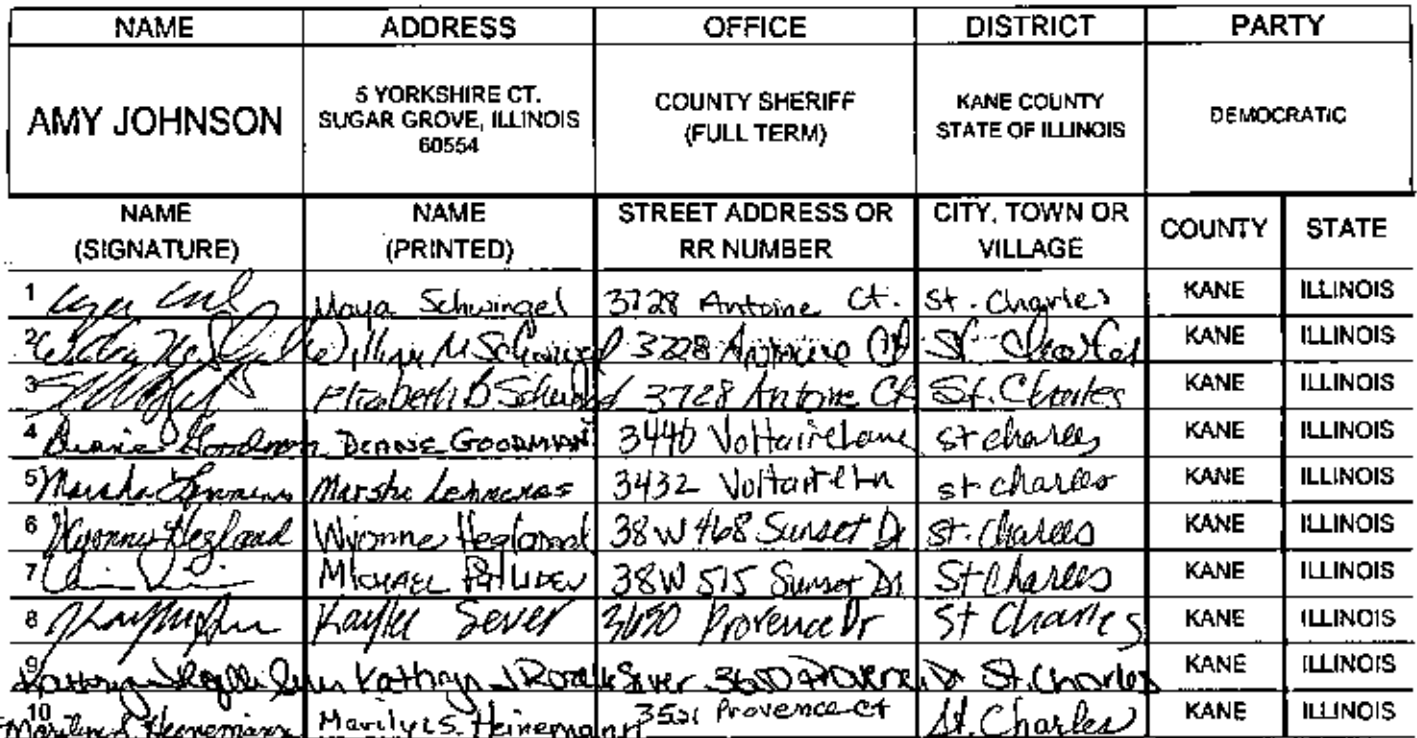 NAME ADDRESS OFFICE DISTRICT PARTY
AMY JOHNSON 5 YORKSHIRE CT. SUGAR GROVE, ILLINOIS 60554 COUNTY SHERIFF (FULL TERM) KANE COUNTY STATE OF ILLINOIS DEMOCRATIC
NAME (SIGNATURE) NAME (PRINTED) STREET ADDRESS OR RR NUMBER CITY, TOWN OR VILLAGE COUNTY STATE
1 Maya Schwingel 3728 Antoine Ct. St. Charles KANE ILLINOIS
2 William M Schwingel 3728 Antoine Ct St Charles KANE ILLINOIS
3 Elizabeth B 3728 Antoine Ct St. Charles KANE ILLINOIS
4 Goodman DEANE GOODMAN 3440 Voltaire Lane St charles KANE ILLINOIS
5 Marsha 3432 Voltaire Ln st charles KANE ILLINOIS
6 Wyonne Hegland Wyonne Hegland 38W468 Sunset Dr St. Charles KANE ILLINOIS
7 MICHAEL 38W515 Sunset Dr St Charles KANE ILLINOIS
8 Sever Provence Dr St Charles KANE ILLINOIS
9 Kathryn J Sever Dr St. Charles KANE ILLINOIS
10 Marilyn S. Heinemann Marilyn S. Heinemann Provence Ct St. Charles KANE ILLINOIS